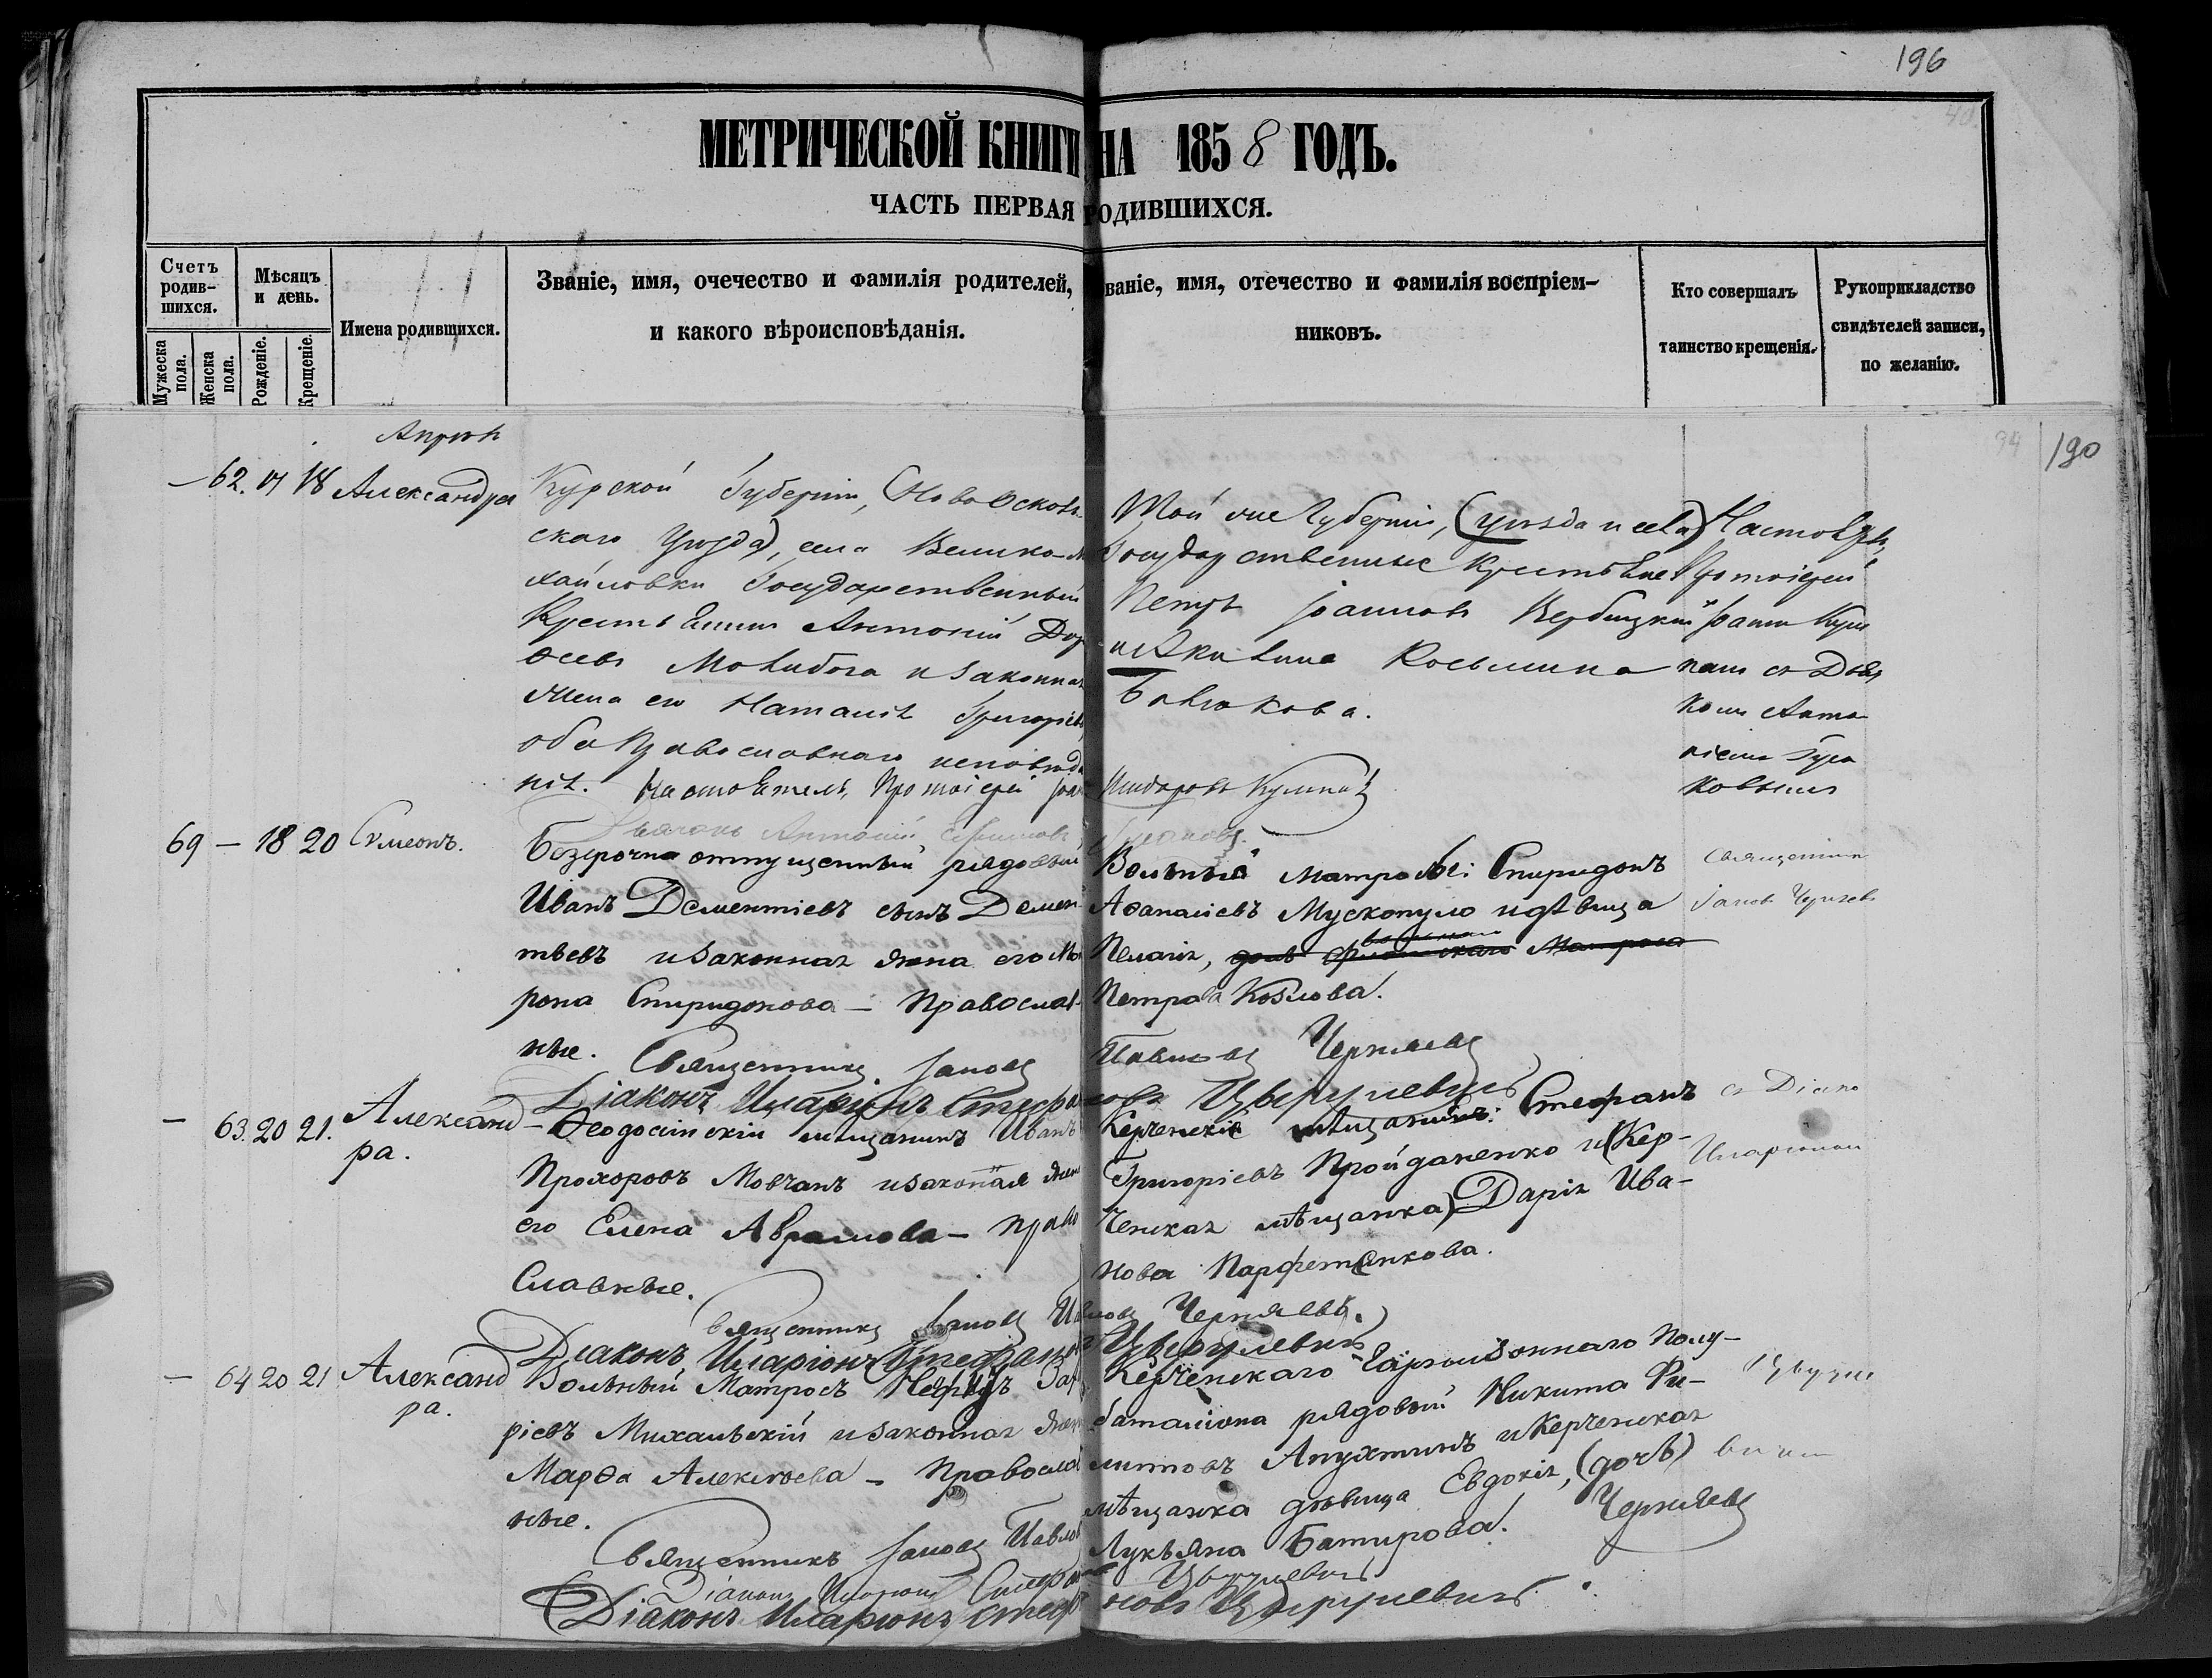 196
40
МЕТРИЧЕСКОЙ КНИГИ НА 1858 ГОДЪ.
ЧАСТЬ ПЕРВАЯ РОДИВШИХСЯ.
Счетъ родив-шихся.
Мужеска пола.
Женска пола.
Мѣсяцъ и день.
Рожденіе.
Крещеніе.
Имена родившихся.
Званіе, имя, очечество и фамилія родителей,
и какого вѣроисповѣданія.
Званіе, имя, отечество и фамилія воспріем-
никовъ.
Кто совершалъ
таинство крещенія.
Рукоприкладство
свидѣтелей записи,
по желанію.
94 190
— 62. 17 18 Александра
Курской Губерніи, (Ново Осколь-
скаго Уѣзда), села Велико-М
хайловки Государственный
Крестьянинъ Антоній Дор
ѳеевъ и законная
жена его Наталія Григорьев
оба Православнаго исповѣда
нія. Настоятель, Протоіерей Іоан
Той же Губерніи, (уѣзда и села)
Государственные Крестьяне
Петръ Іоанновъ Вербицкій
и Акилина Косьмина
Бавыкова.
Настоятель,
Протоіерей
Іоаннъ
съ Діа
кономъ Анто
ніемъ Гуса
ковымъ
69 — 18 20 Симеонъ.
Діаконъ Антоній
Безсрочно отпущенный рядовый
Иванъ Дементіевъ сынъ Демен-
тьевъ и законная жена его Мат
рона Спиридонова — Православ-
ные. Священникъ Іаковъ
Діаконъ Иларіонъ Стефа
Вольный матросъ: Спиридонъ
Аѳанасіевъ Мускопуло и дѣвица
Пелагія,
вольнаго Матроса
Петра Козлова.
Павловъ Черняевъ
новъ Цвѣрулевичъ
Священникъ
Іаковъ Черняевъ
— 63. 20 21. Александ-
ра.
Ѳеодосійскій мѣщанинъ Иванъ
Прохоровъ Мовчанъ и законная жена
его Елена Аврамова — Право
славные.
Священникъ Іаковъ Павловъ Черняевъ.
Діаконъ Иларіонъ Стефановъ Цвѣрулевичъ
Керченскій мѣщанинъ: Стефанъ
Григоріевъ Пройданенко и (Кер-
ченская мѣщанка) Дарія Ива-
нова Парфетенкова.
съ Діако
Иларіоном
— 64 20 21 Александ
ра.
Вольный Матросъ
ріевъ Михальскій и законная жена
Марѳа Алексѣева — Православ
ные.
Священникъ Іаковъ Павлов
Керченскаго Гарнизоннаго Полу-
баталіона рядовой Никита Фи-
липовъ Апухтинъ и Керченская
мѣщанка дѣвица Евдокія, (дочь)
Лукьяна Батирова. Черняевъ
Діаконъ Иларіонъ Стефановъ Цвѣрулевичъ
Діаконъ Иларіонъ Стефановъ Цвѣрулевичъ.